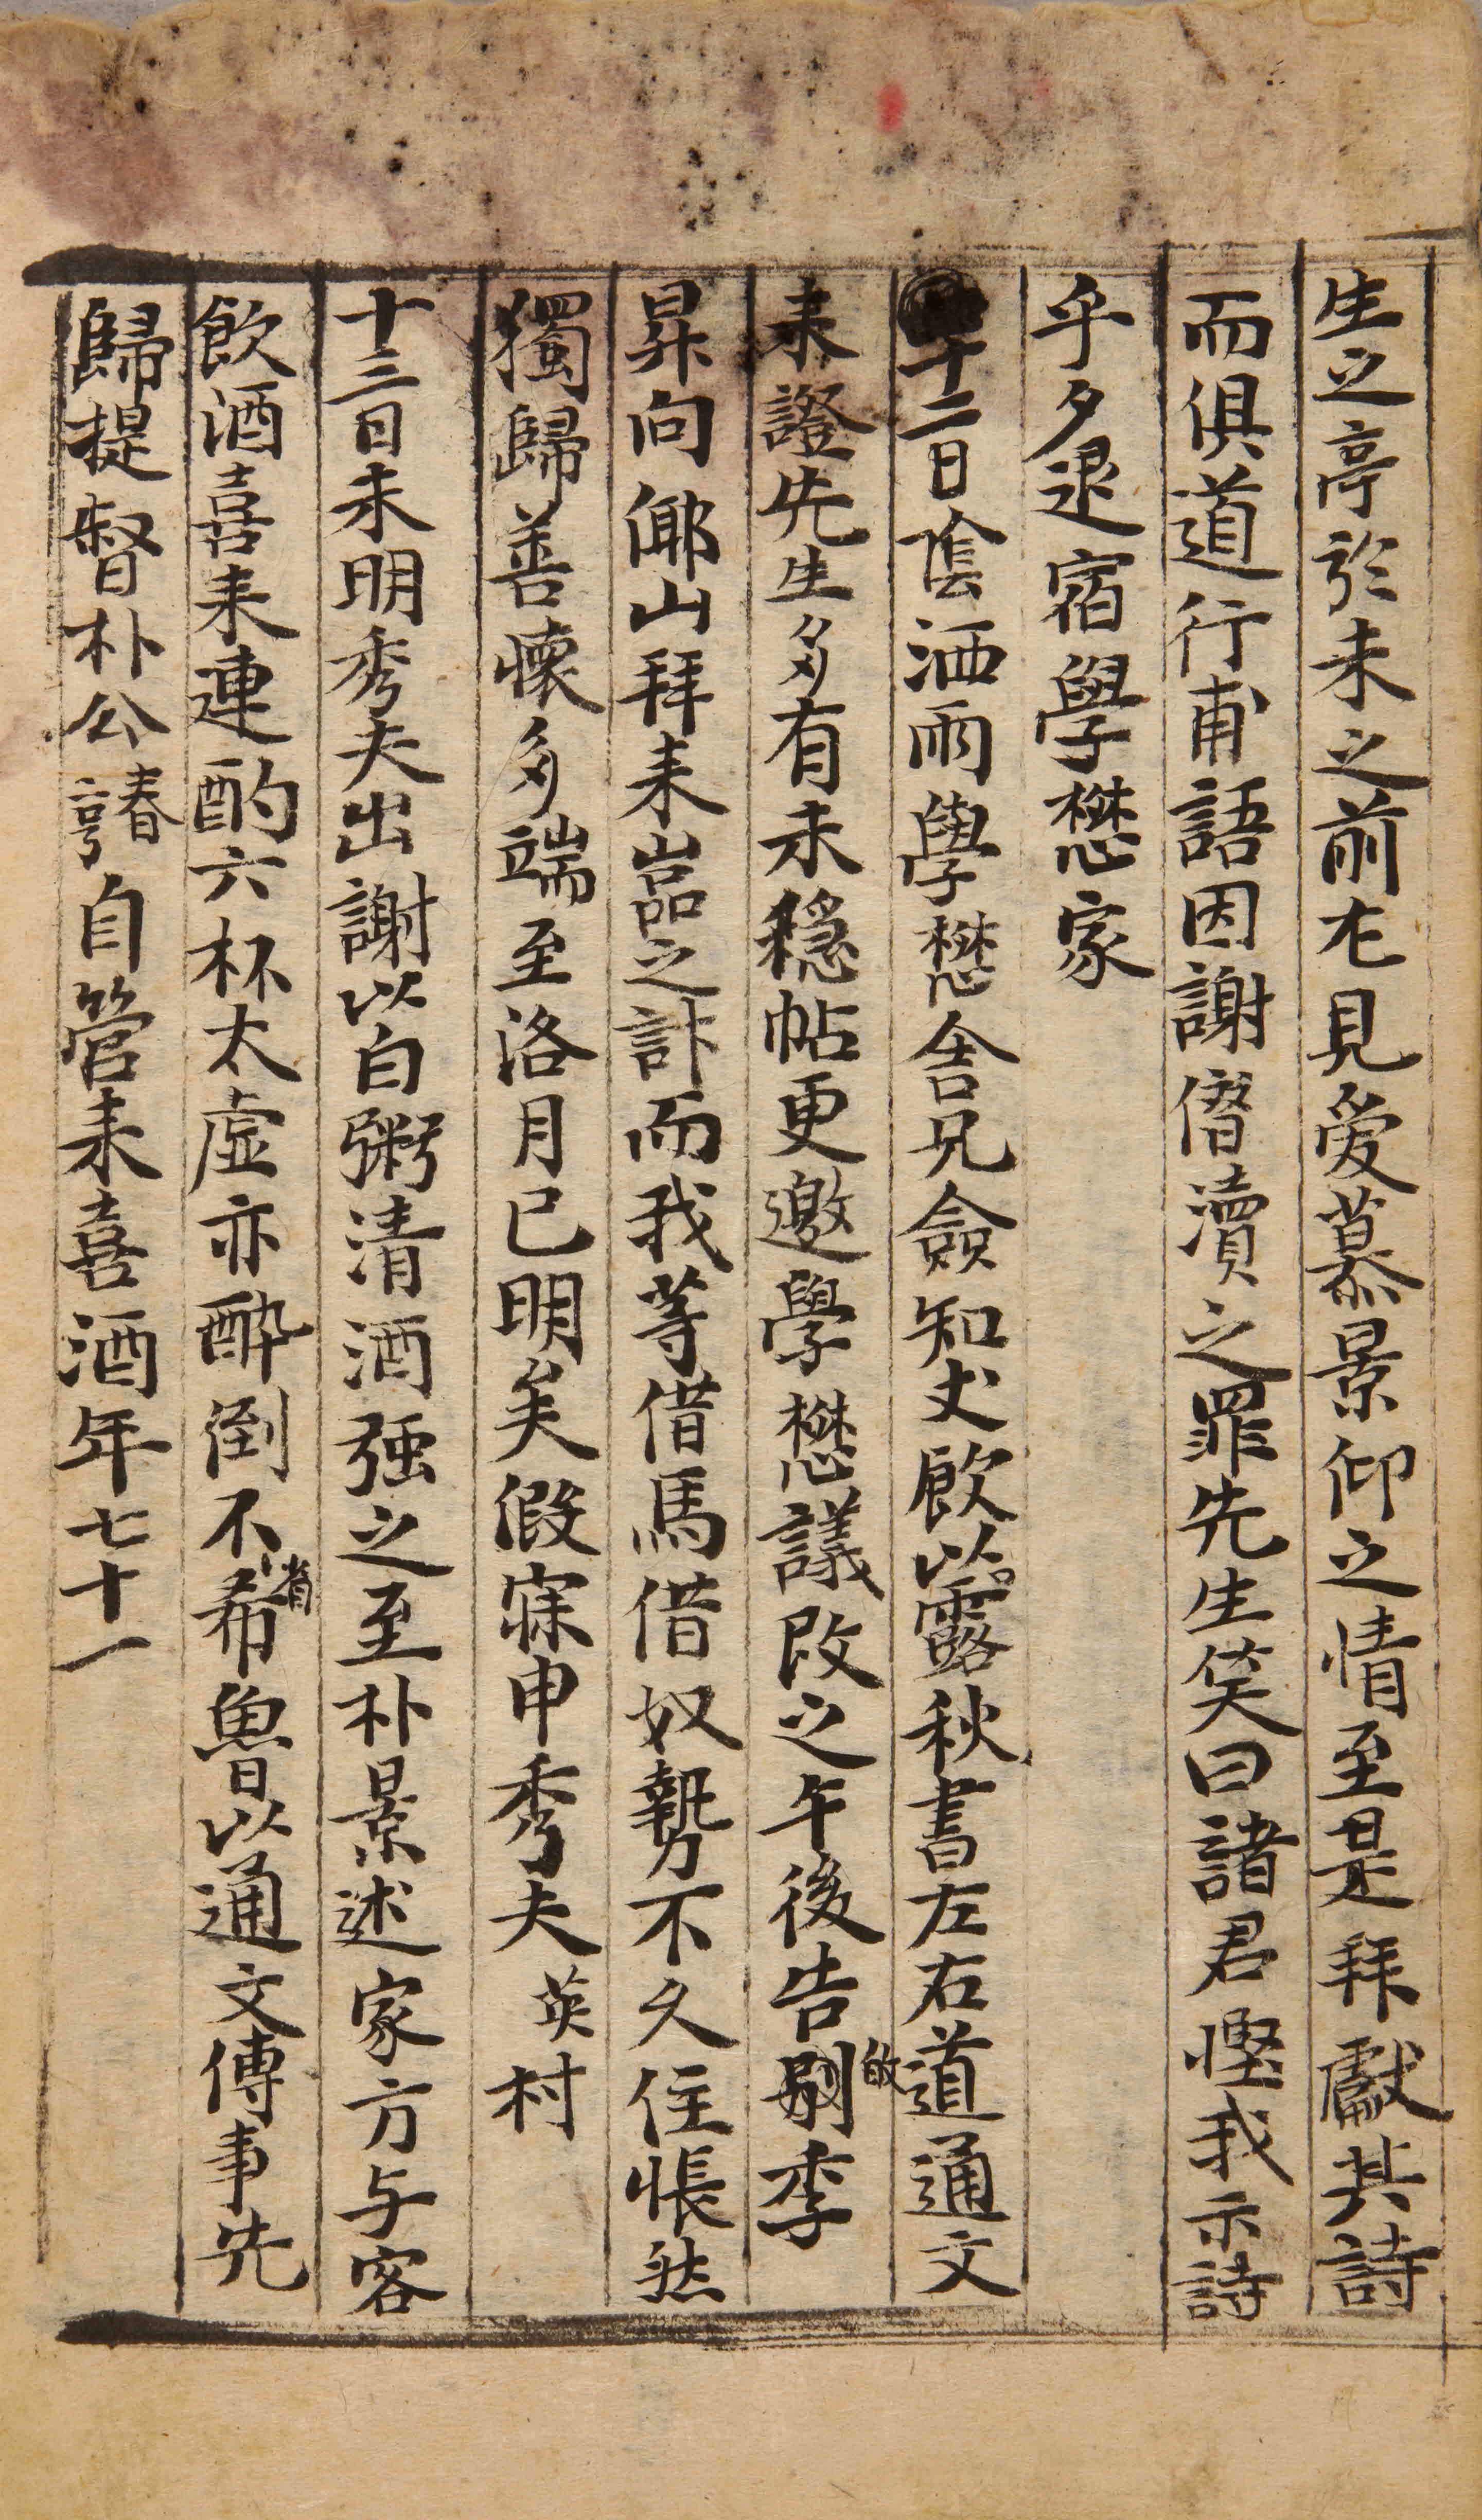 生之亭於未之前尤見愛慕景仰之情至是拜獻其詩
而俱道行甫語因謝僭瀆之罪先生笑曰諸君慳我示詩
乎夕退宿學懋家
十二日陰洒雨學懋舍兄僉知丈飮以露秋書左右道通文
来證先生多有未穩帖更邀學懋議改之午後告別李
昇向鄕山拜来嵓之計而我等借馬借奴勢不久住悵然
獨歸善懷多端至洛月已明矣假寐申秀夫英村
十三日未明秀夫出謝以白粥清酒强之至朴景述家方与客
飮酒喜来連酌六杯太虛亦醉倒不省希魯以通文傳事先
歸提督朴公春亨自管来喜酒年七十一